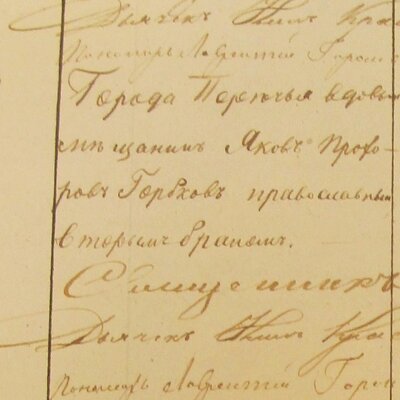 Дьячекъ
Пономарь Лаврентій Горо
Города Порѣчья вдовы
мѣщанинъ Яковъ Прохо-
ровъ Горбховъ православный
вторымъ бракомъ.
Священникъ
Дьячекъ
Пономарь Лаврентій Горо